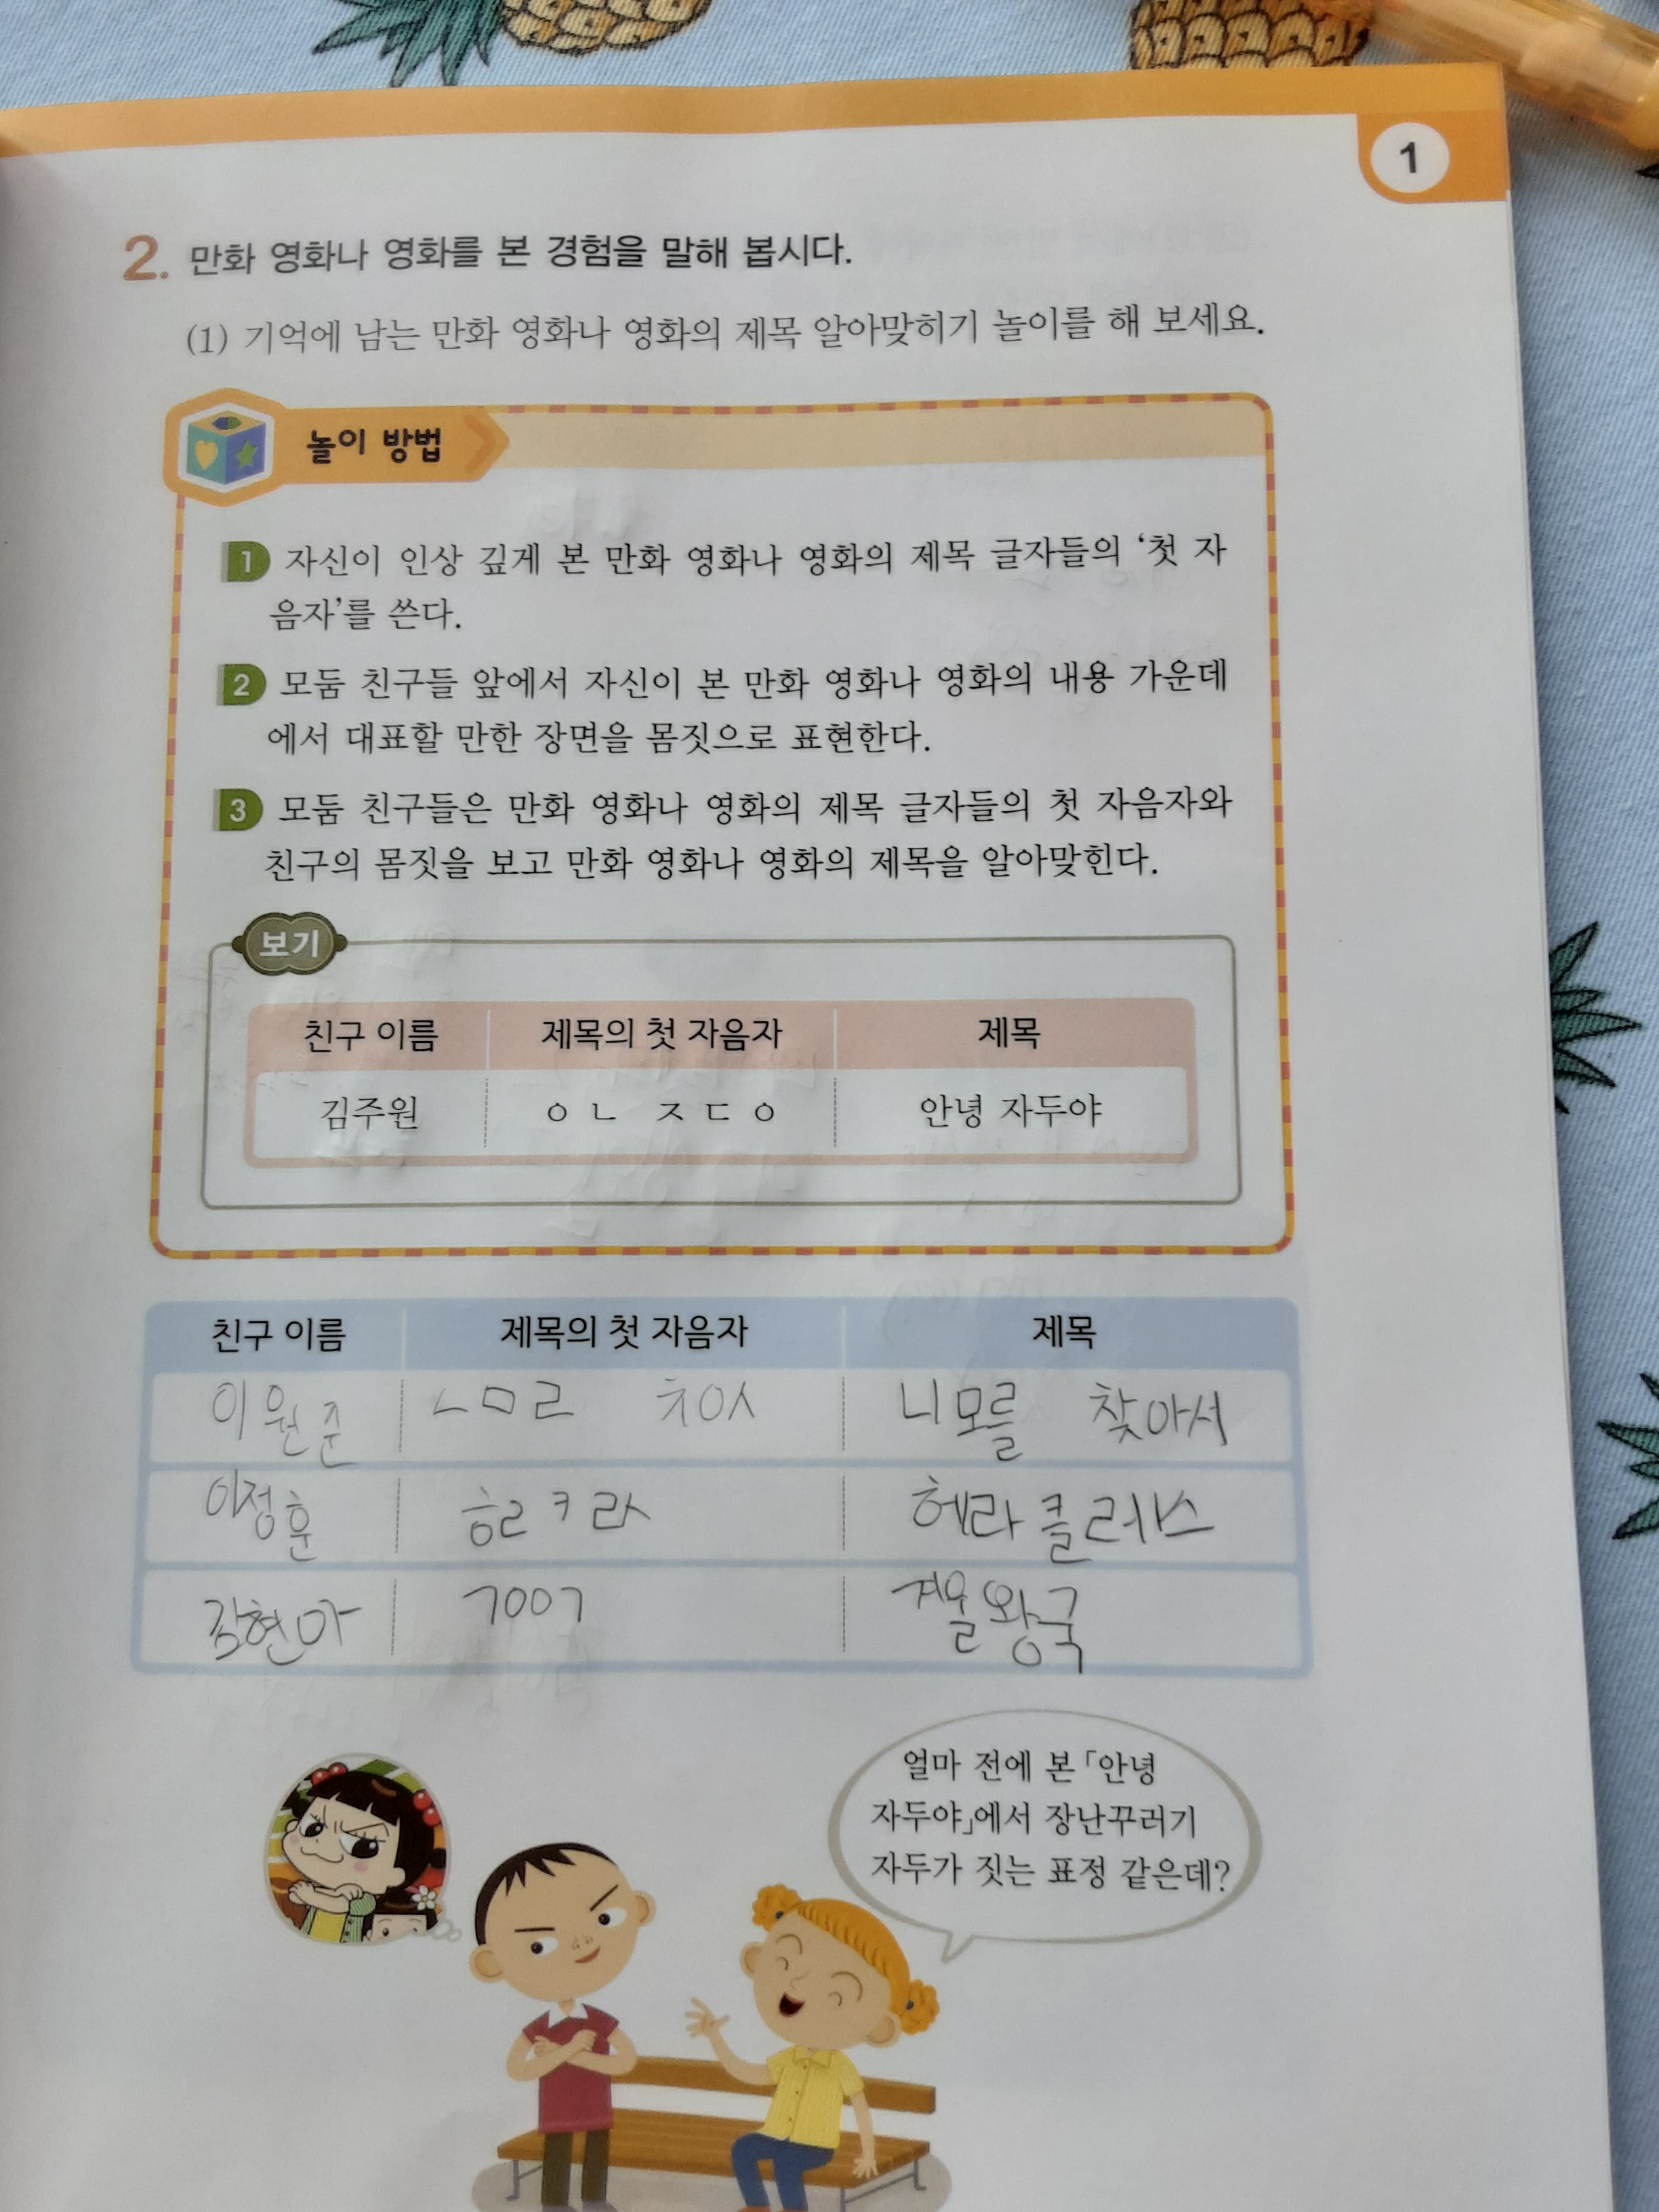 1
2. 만화 영화나 영화를 본 경험을 말해 봅시다.
(1) 기억에 남는 만화 영화나 영화의 제목 알아맞히기 놀이를 해 보세요.
놀이 방법
1 자신이 인상 깊게 본 만화 영화나 영화의 제목 글자들의 ‘첫 자
음자’를 쓴다.
2 모둠 친구들 앞에서 자신이 본 만화 영화나 영화의 내용 가운데
에서 대표할 만한 장면을 몸짓으로 표현한다.
3 모둠 친구들은 만화 영화나 영화의 제목 글자들의 첫 자음자와
친구의 몸짓을 보고 만화 영화나 영화의 제목을 알아맞힌다.
보기
친구 이름 제목의 첫 자음자 제목
김주원 ㅇㄴ ㅈㄷㅇ 안녕 자두야
친구 이름 제목의 첫 자음자 제목
이원준 ㄴㅁㄹ ㅊㅇㅅ 니모를 찾아서
이정훈 ㅎㄹㅋㄹㅅ 헤라클레스
ㄱㅇㅇㄱ 겨울왕국
얼마 전에 본 「안녕
자두야」에서 장난꾸러기
자두가 짓는 표정 같은데?